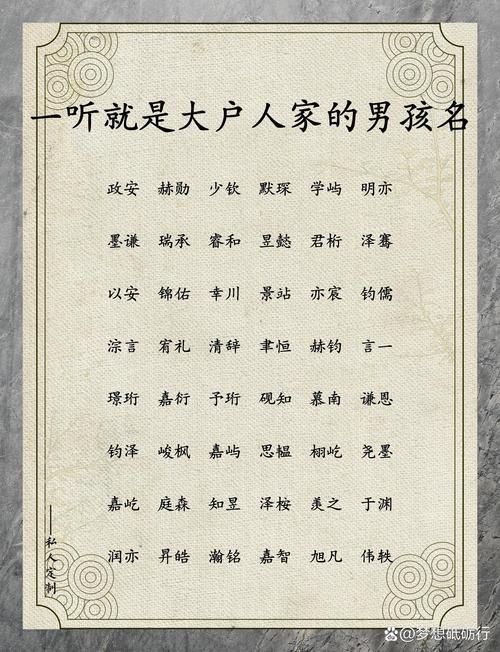 一听就是大户人家的男孩名
政安 赫勋 少钦 默琛 学屿 明亦
墨谦 瑞承 睿和 昱懿 君桁 泽骞
以安 锦佑 幸川 景站 亦宸 钧儒
淙言 宥礼 清辞 聿恒 赫钧 言一
璟珩 嘉衍 予珩 砚知 慕南 谦恩
钧泽 峻枫 嘉屿 思韫 栩屹 尧墨
嘉屹 庭森 知昱 泽桉 羡之 于渊
润亦 昇皓 瀚铭 嘉智 旭凡 伟轶
——私人定制
@梦想砥砺行